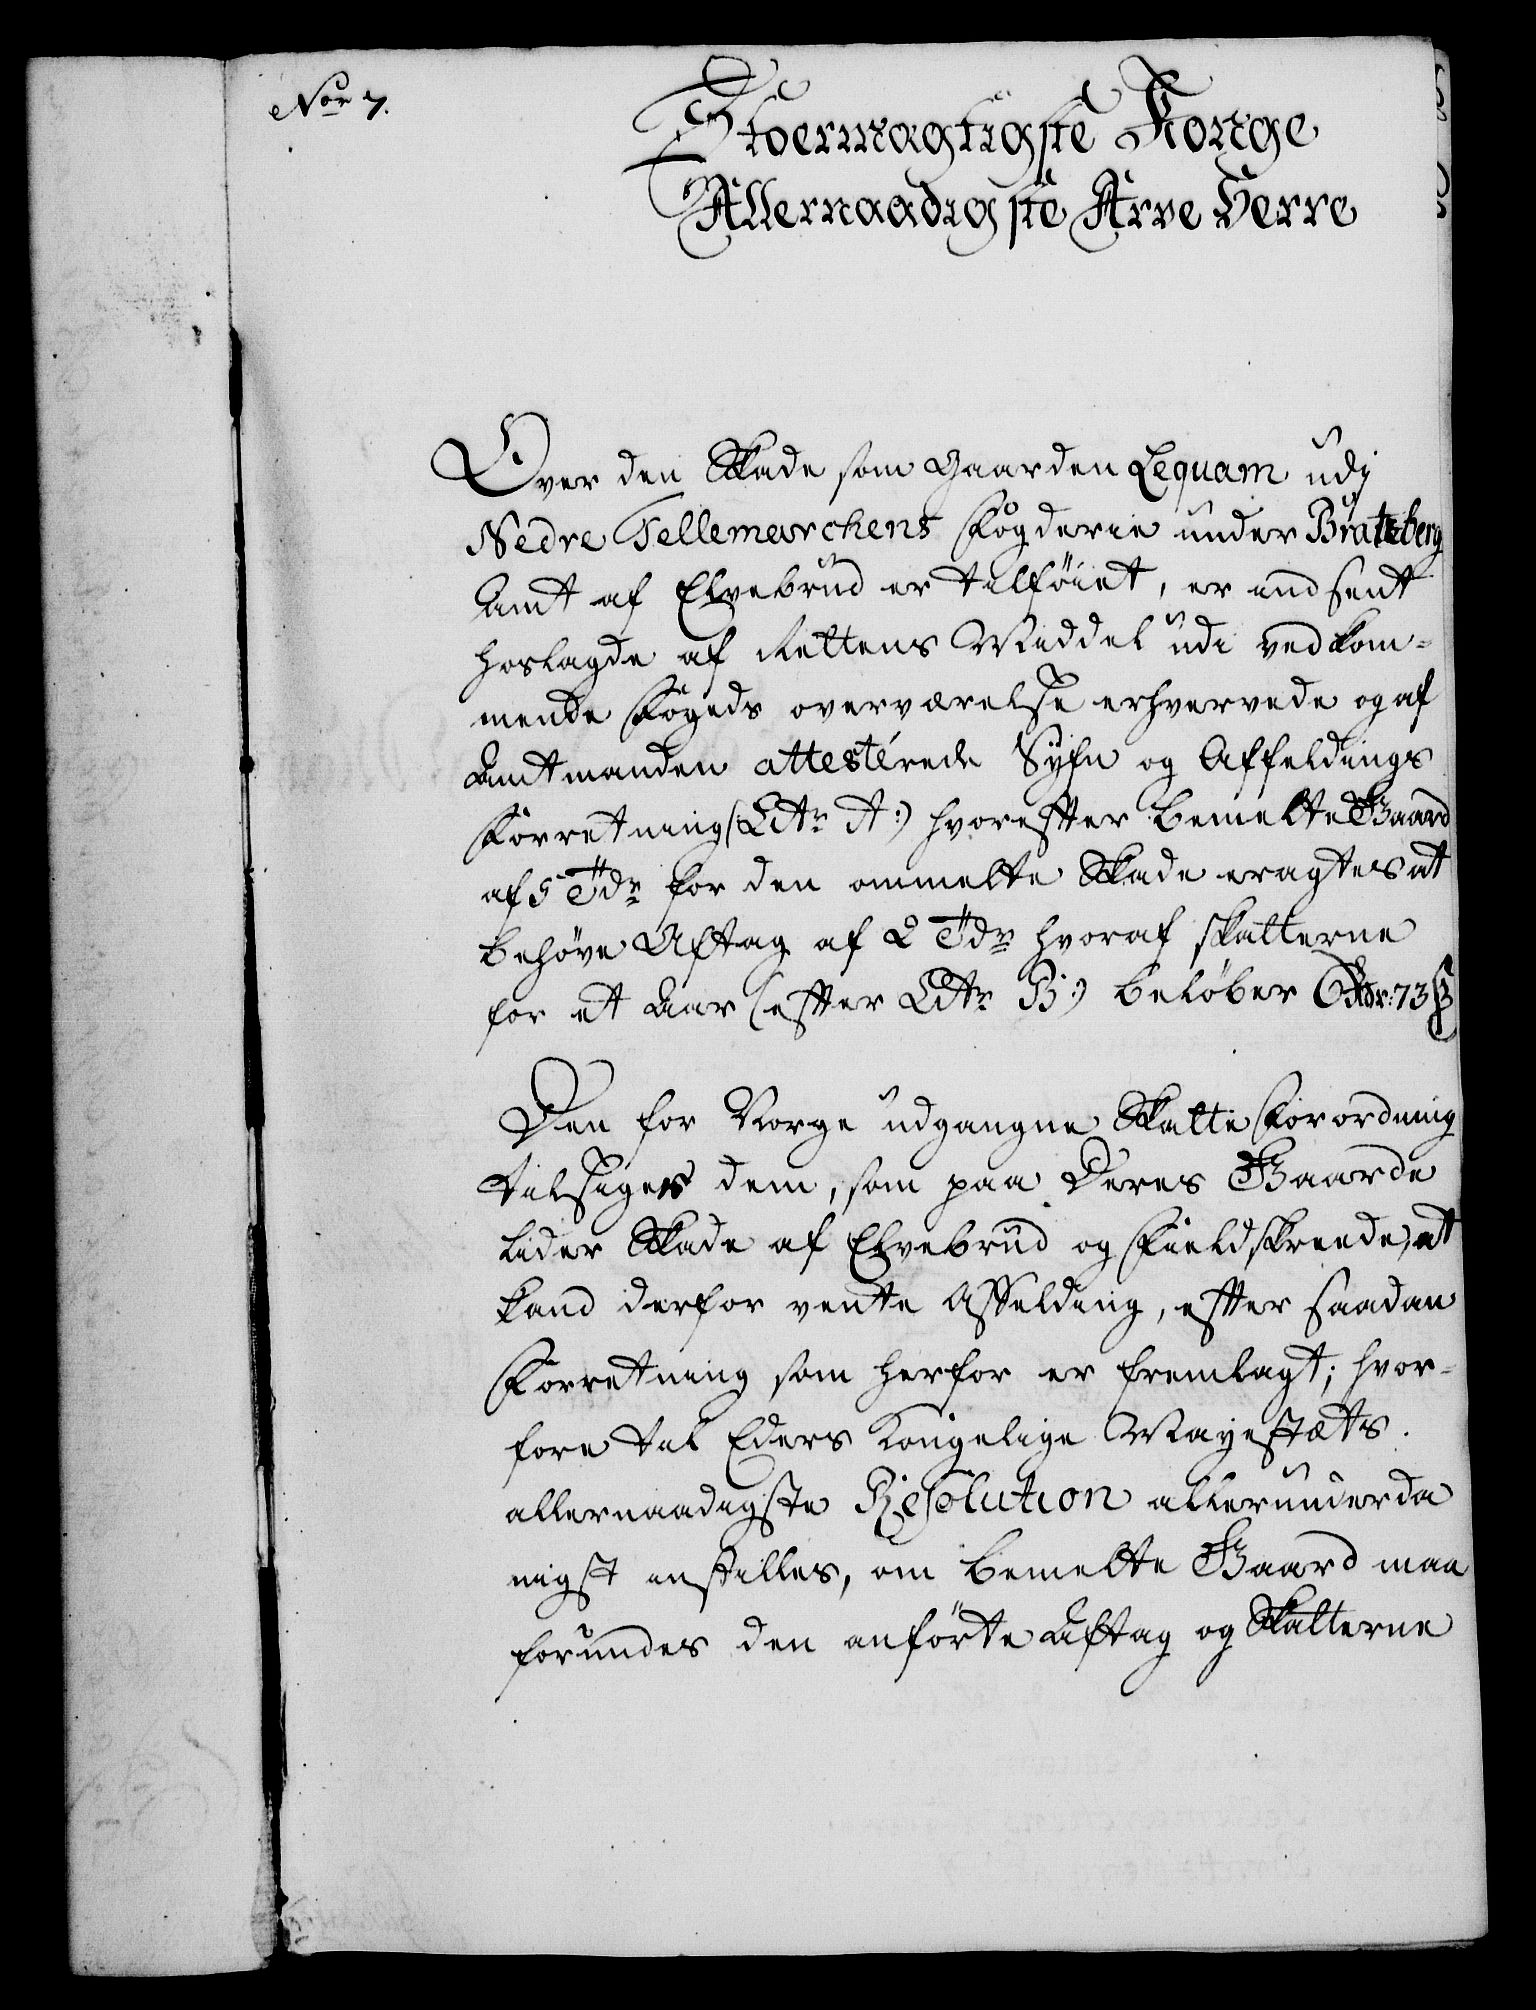 No 7.
Stoermagtigste Konge
Allernaadigste Arve Herre
Over den Skade som Gaarden Lequam udj
Nedre Tellemarchens Fogderie under Bratsberg
Amt af Elvebrud er tilföiet, er indsent
hoslagde af Rettens Middel udi vedkom-
mende Fogeds overværelse erhvervede og af
Amtmanden attesterede Syfn og Affeldings
Forretning (: Litr A :) hvorefter bemelte Gaard
af 5 Tdr for den ommelte Skade eragtes at
behöve Aftag af 2 Tdr hvoraf skatterne
for et Aar (efter Litr B :) belöber 6 Rdr: 73 ß
Den for Norge udgangne Skatte Forordning
tilsiger dem, som paa Deres Gaarde
lider Skade af Elvebrud og Fieldskreede, at
kand derfor vente Affelding, efter saadan
Forretning som herfor er fremlagt; hvor-
fore til Eders Kongelige Mayestæts
allernaadigste Resolution allerunderda
nigst instilles, om bemelte Gaard maa
forundes den anförte Aftag og Skatterne